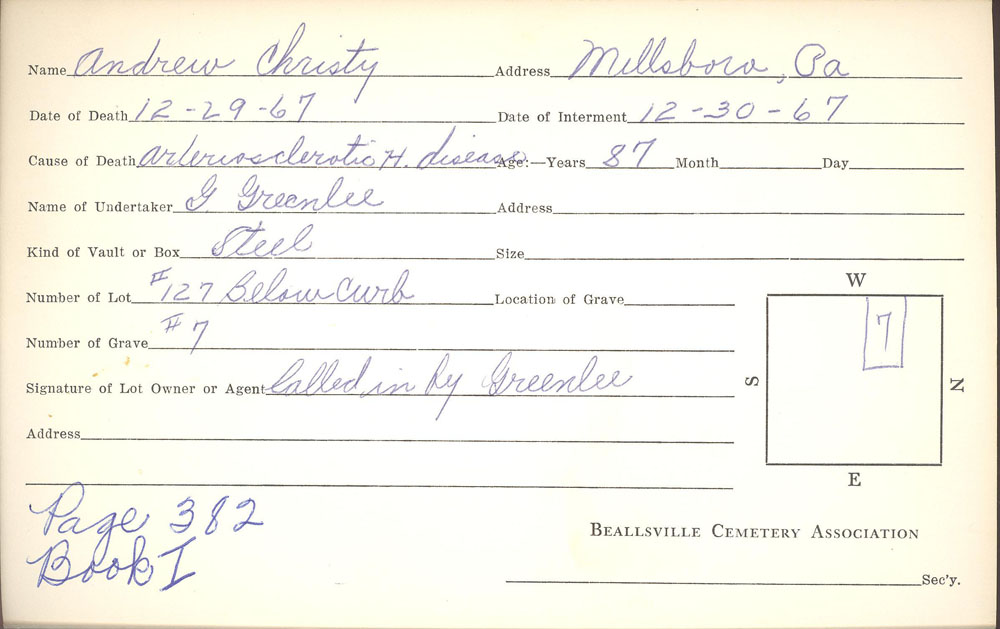 Name Andrew Christy Address Millsboro, Pa
Date of Death 12-29-67 Date of Interment 12-30-67
Cause of Death Arteriosclerotic H. disease Age:—Years 87 Month Day
Name of Undertaker G Greenlee Address
Kind of Vault or Box Steel Size
Number of Lot #127 Below Curb Location of Grave
Number of Grave #7
Signature of Lot Owner or Agent Called in by Greenlee
Address
W
7
S
N
E
Page 382
Book I
BEALLSVILLE CEMETERY ASSOCIATION
Sec'y.